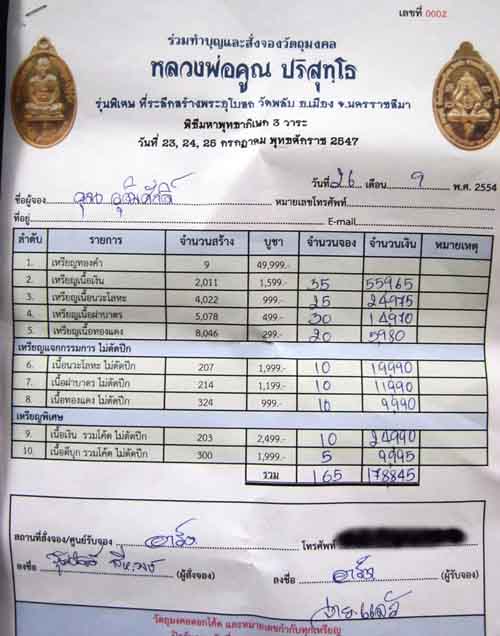 เลขที่ 0002
ร่วมทำบุญและสั่งจองวัตถุมงคล
หลวงพ่อคูณ ปริสุทฺโธ
รุ่นพิเศษ ที่ระลึกสร้างพระอุโบสถ วัดพลับ อ.เมือง จ.นครราชสีมา
พิธีมหาพุทธาภิเษก 3 วาระ
วันที่ 23, 24, 25 กรกฎาคม พุทธศักราช 2547
วันที่ 26 เดือน 9 พ.ศ. 2554
ชื่อผู้จอง หมายเลขโทรศัพท์
ที่อยู่ E-mail
ลำดับ รายการ จำนวนสร้าง บูชา จำนวนจอง จำนวนเงิน หมายเหตุ
1. เหรียญทองคำ 9 49,999.-
2. เหรียญเนื้อเงิน 2,011 1,599.- 35 55965
3. เหรียญเนื้อนวะโลหะ 4,022 999.- 25 24975
4. เหรียญเนื้อฝาบาตร 5,078 499.- 30 14970
5. เหรียญเนื้อทองแดง 8,046 299.- 20 5980
เหรียญแจกกรรมการ ไม่ตัดปีก
6. เนื้อนวะโลหะ ไม่ตัดปีก 207 1,999.- 10 19990
7. เนื้อฝาบาตร ไม่ตัดปีก 214 1,199.- 10 11990
8. เนื้อทองแดง ไม่ตัดปีก 324 999.- 10 9990
เหรียญพิเศษ
9. เนื้อเงิน รวมโค้ด ไม่ตัดปีก 203 2,499.- 10 24990
10. เนื้อดีบุก รวมโค้ด ไม่ตัดปีก 300 1,999.- 5 9995
รวม 165 178845
สถานที่สั่งจอง/ศูนย์รับจอง โทรศัพท์
ลงชื่อ (ผู้สั่งจอง) ลงชื่อ (ผู้รับจอง)
จ่ายแล้ว
วัตถุมงคลตอกโค้ด และหมายเลขกำกับทุกเหรียญ